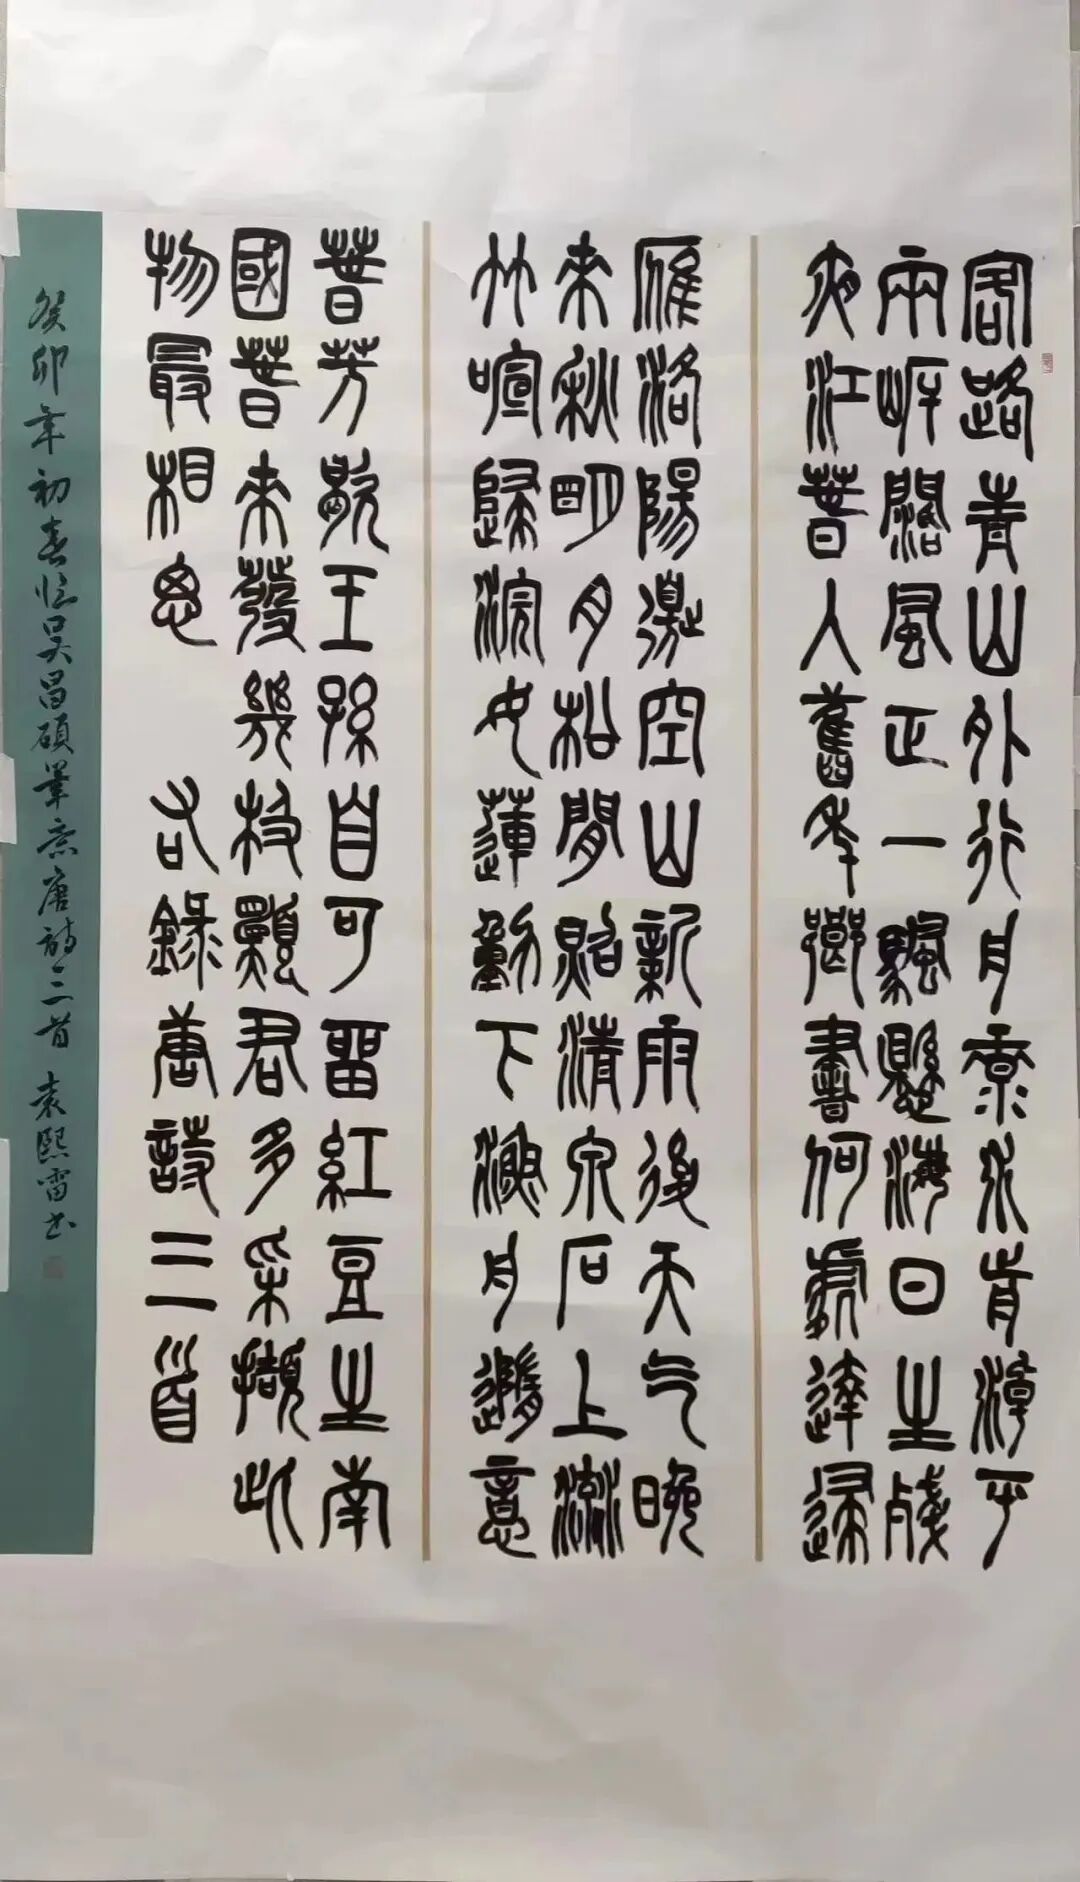 客路青山外行舟綠水前潮平
兩岸闊風正一颿懸海日生殘
夜江春入舊年鄉書何處達歸
雁洛陽邊空山新雨後天气晚
來秋明月松間照清泉石上流
竹喧歸浣女蓮動下漁舟隨意
春芳歇王孫自可留紅豆生南
國春來發幾枝願君多采擷此
物最相思 右錄唐詩三首
癸卯年初春臨吴昌碩筆意唐詩三首 袁熙雷书